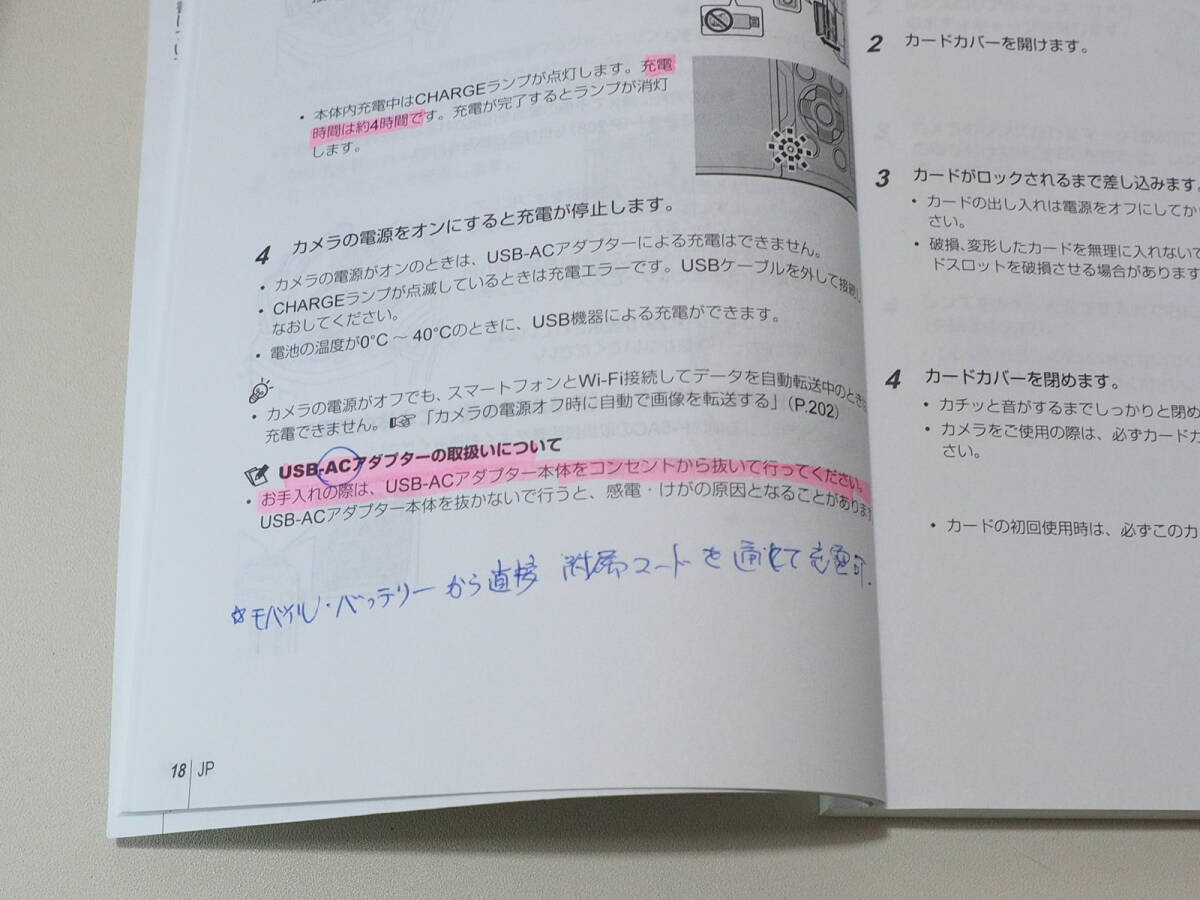 • 本体内充電中はCHARGEランプが点灯します。充電
時間は約4時間です。充電が完了するとランプが消灯
します。
4 カメラの電源をオンにすると充電が停止します。
• カメラの電源がオンのときは、USB-ACアダプターによる充電はできません。
• CHARGEランプが点滅しているときは充電エラーです。USBケーブルを外して接続し
なおしてください。
• 電池の温度が0°C ～ 40°Cのときに、USB機器による充電ができます。
• カメラの電源がオフでも、スマートフォンとWi-Fi接続してデータを自動転送中のときは
充電できません。☞「カメラの電源オフ時に自動で画像を転送する」(P.202)
USB-ACアダプターの取扱いについて
• お手入れの際は、USB-ACアダプター本体をコンセントから抜いて行ってください。
USB-ACアダプター本体を抜かないで行うと、感電・けがの原因となることがあります
☆モバイル・バッテリーから直接 附属コードを通じて充電可.
18 JP
2 カードカバーを開けます。
3 カードがロックされるまで差し込みます。
• カードの出し入れは電源をオフにしてか
さい。
• 破損、変形したカードを無理に入れないで
ドスロットを破損させる場合があります
4 カードカバーを閉めます。
• カチッと音がするまでしっかりと閉め
• カメラをご使用の際は、必ずカードカ
さい。
• カードの初回使用時は、必ずこのカ